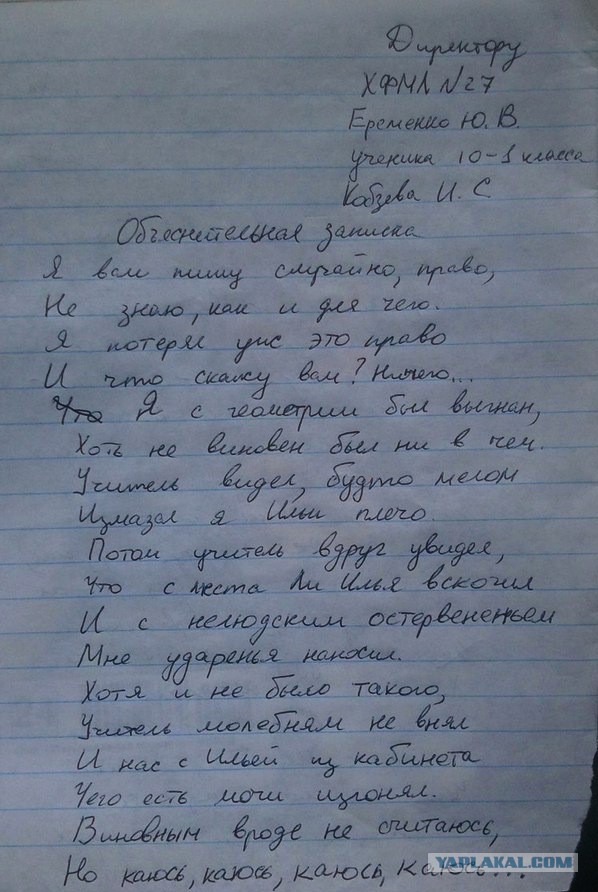 Директору
ХФМЛ №27
Еременко Ю.В.
ученика 10-1 класса
Кобзева И.С
Объяснительная записка
Я вам пишу случайно, право,
Не знаю, как и для чего.
Я потерял уж это право
И что скажу вам? Ничего...
Что Я с геометрии был выгнан,
Хоть не виновен был ни в чем.
Учитель видел, будто мелом
Измазал я Ильи плечо.
Потом учитель вдруг увидел,
Что с места Ли Илья вскочил
И с нелюдским остервененьем
Мне ударенья наносил.
Хотя и не было такого,
Учитель молебням не внял
И нас с Ильей из кабинета
Чего есть мочи изгонял.
Виновным вроде не считаюсь,
Но каюсь, каюсь, каюсь, каюсь...
YAPLAKAL.COM